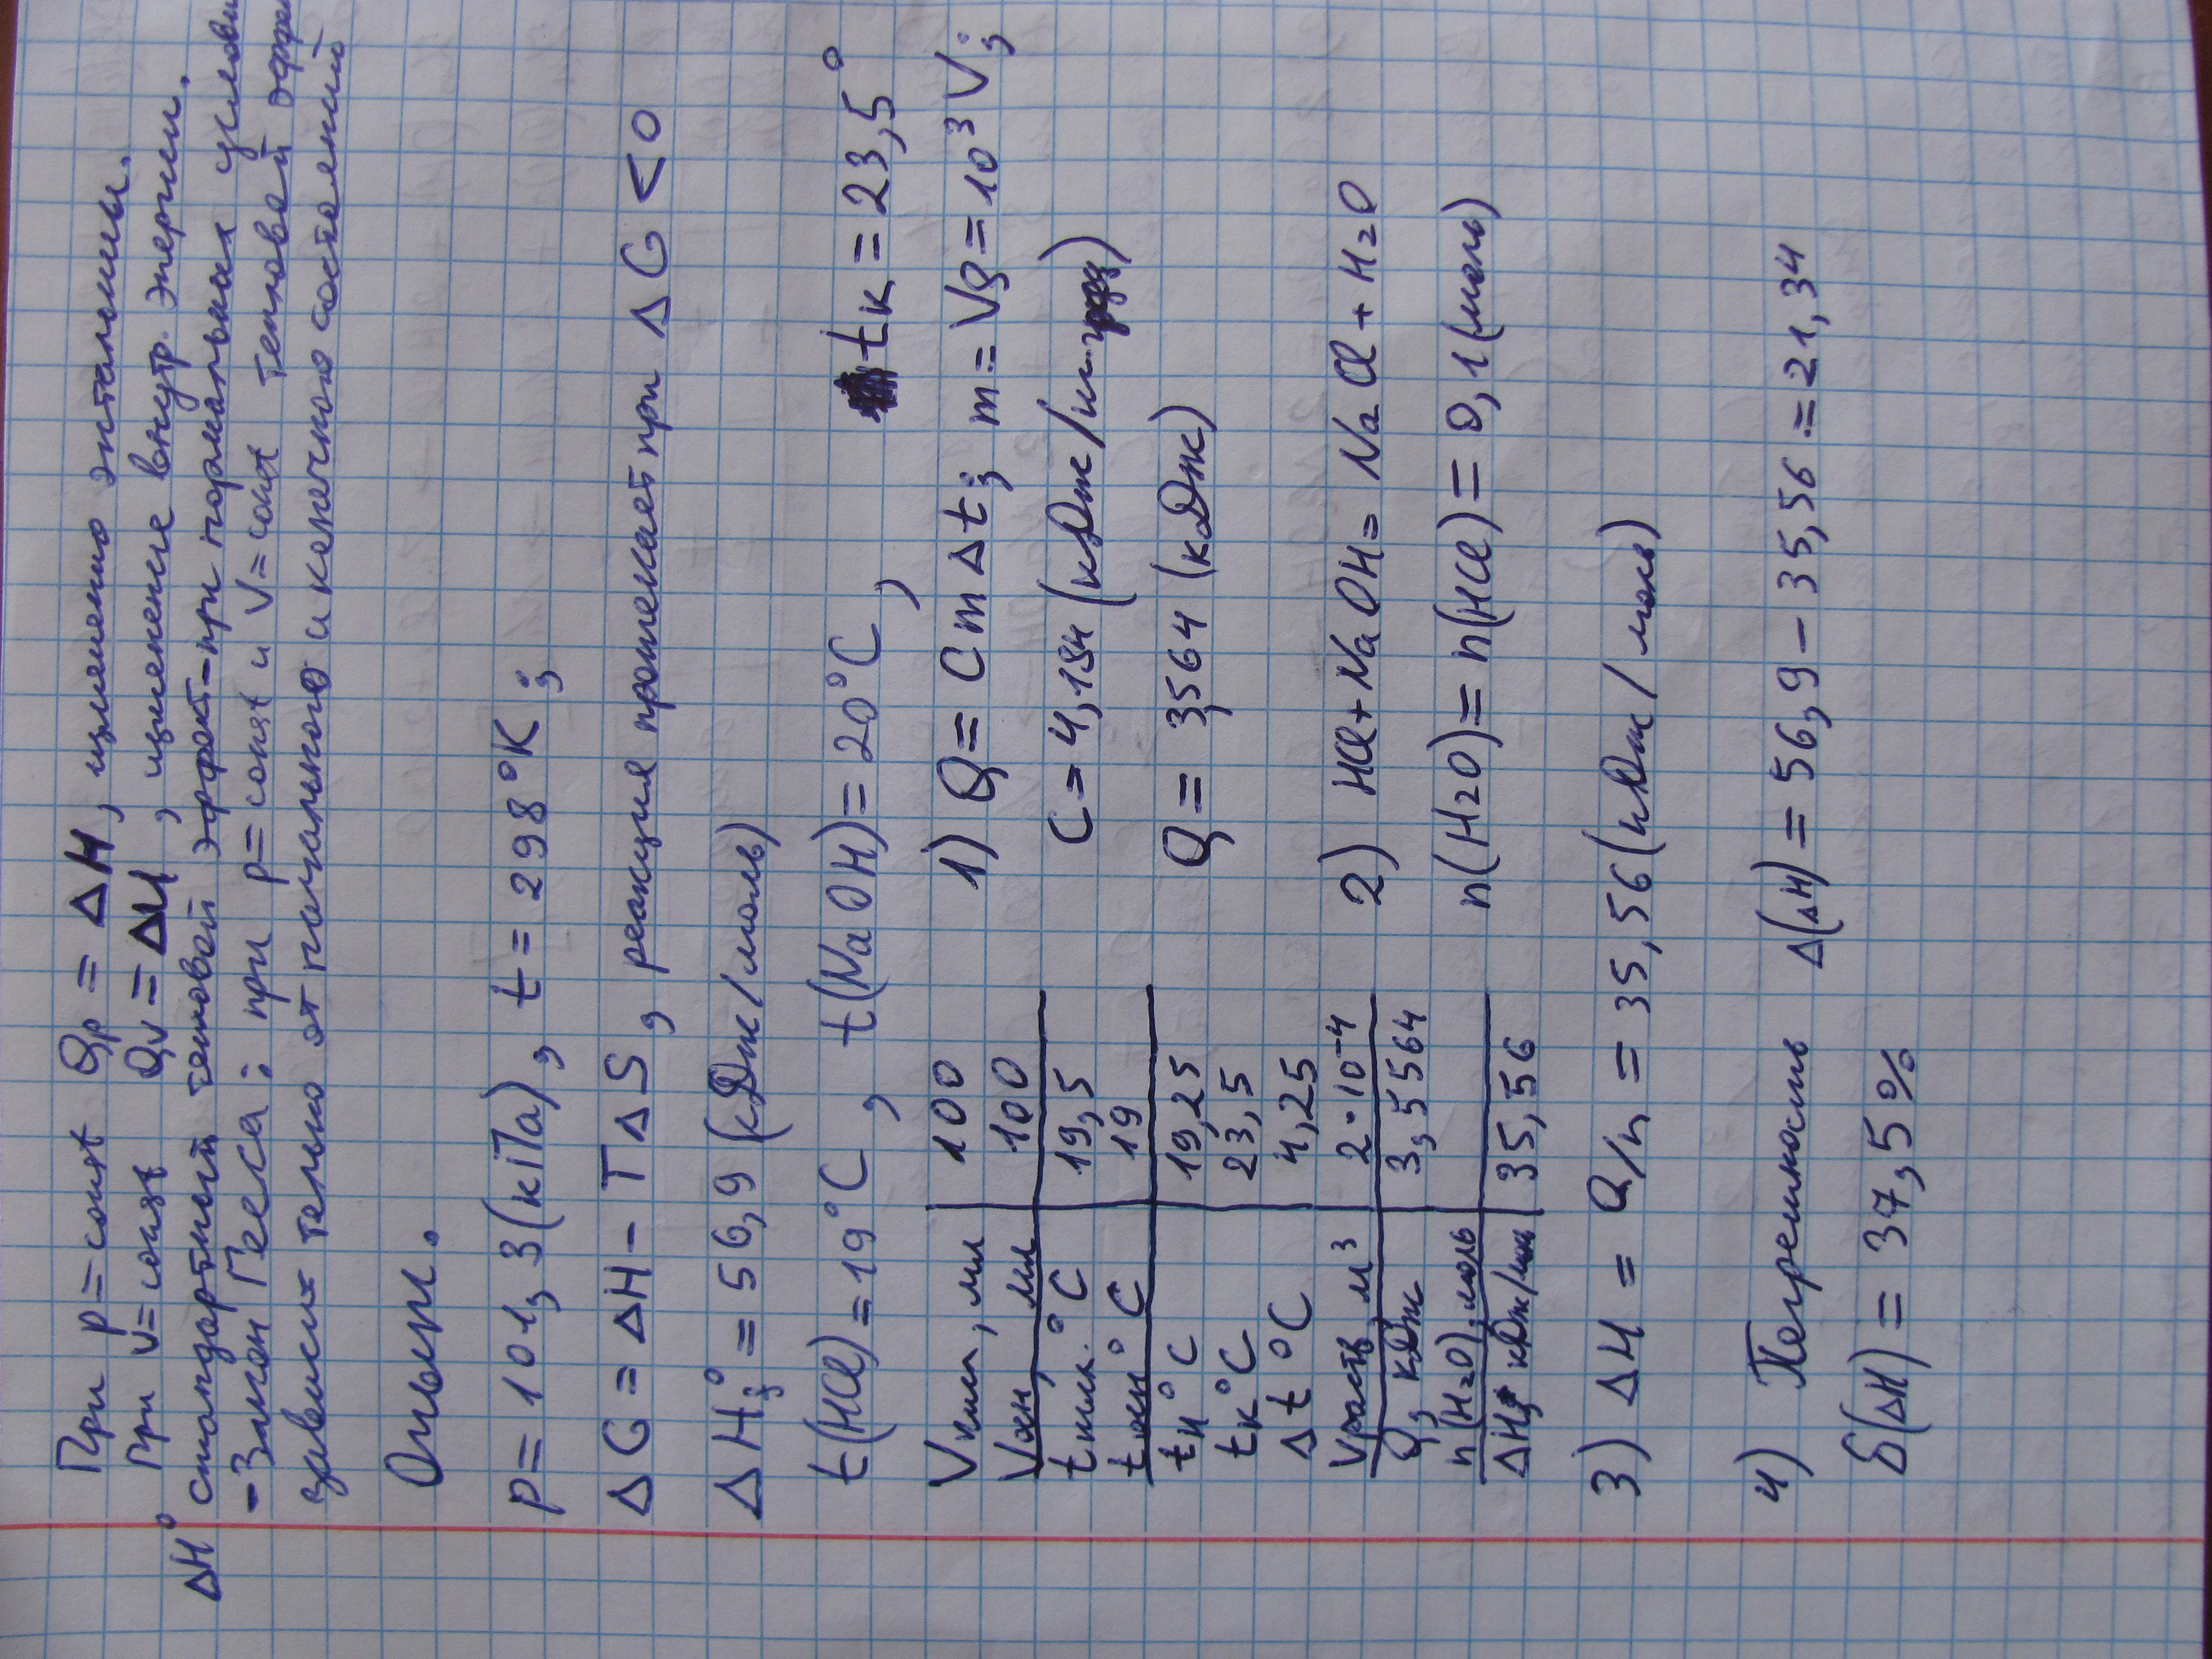 При p=const Qp = ΔH, изменение энтальпии.
При V=const Qv = ΔU, изменение внутр. энергии.
ΔH° стандартный тепловой эффект-при нормальных услови
-Закон Гесса: при p=const и V=const тепловой эффе
зависит только от начального и конечного состояний
Опыт.
p=101,3(кПа), t=298°К;
ΔG=ΔH-TΔS, реакция протекает при ΔG<0
ΔH₃°=56,9 (кДж/моль)
t(HCl)=19°C, t(NaOH)=20°C, tк=23,5°
Vкисл, мл 100
Vосн, мл 100
tкисл. °C 19,5
tосн °C 19
tн °C 19,25
tк °C 23,5
Δt °C 4,25
Vраств, м³ 2·10⁻⁴
Q, кДж 3,5564
n(H₂O), моль
ΔH₃ кДж/моль 35,56
1) Q=CmΔt; m=Vρ=10³V;
C=4,184 (кДж/кг·град)
Q=3,564 (кДж)
2) HCl+NaOH=NaCl+H₂O
n(H₂O)=n(HCl)=0,1(моль)
3) ΔH = Q/n = 35,56(кДж/моль)
4) Погрешность Δ(ΔH)=56,9-35,56=21,34
δ(ΔH)=37,5%